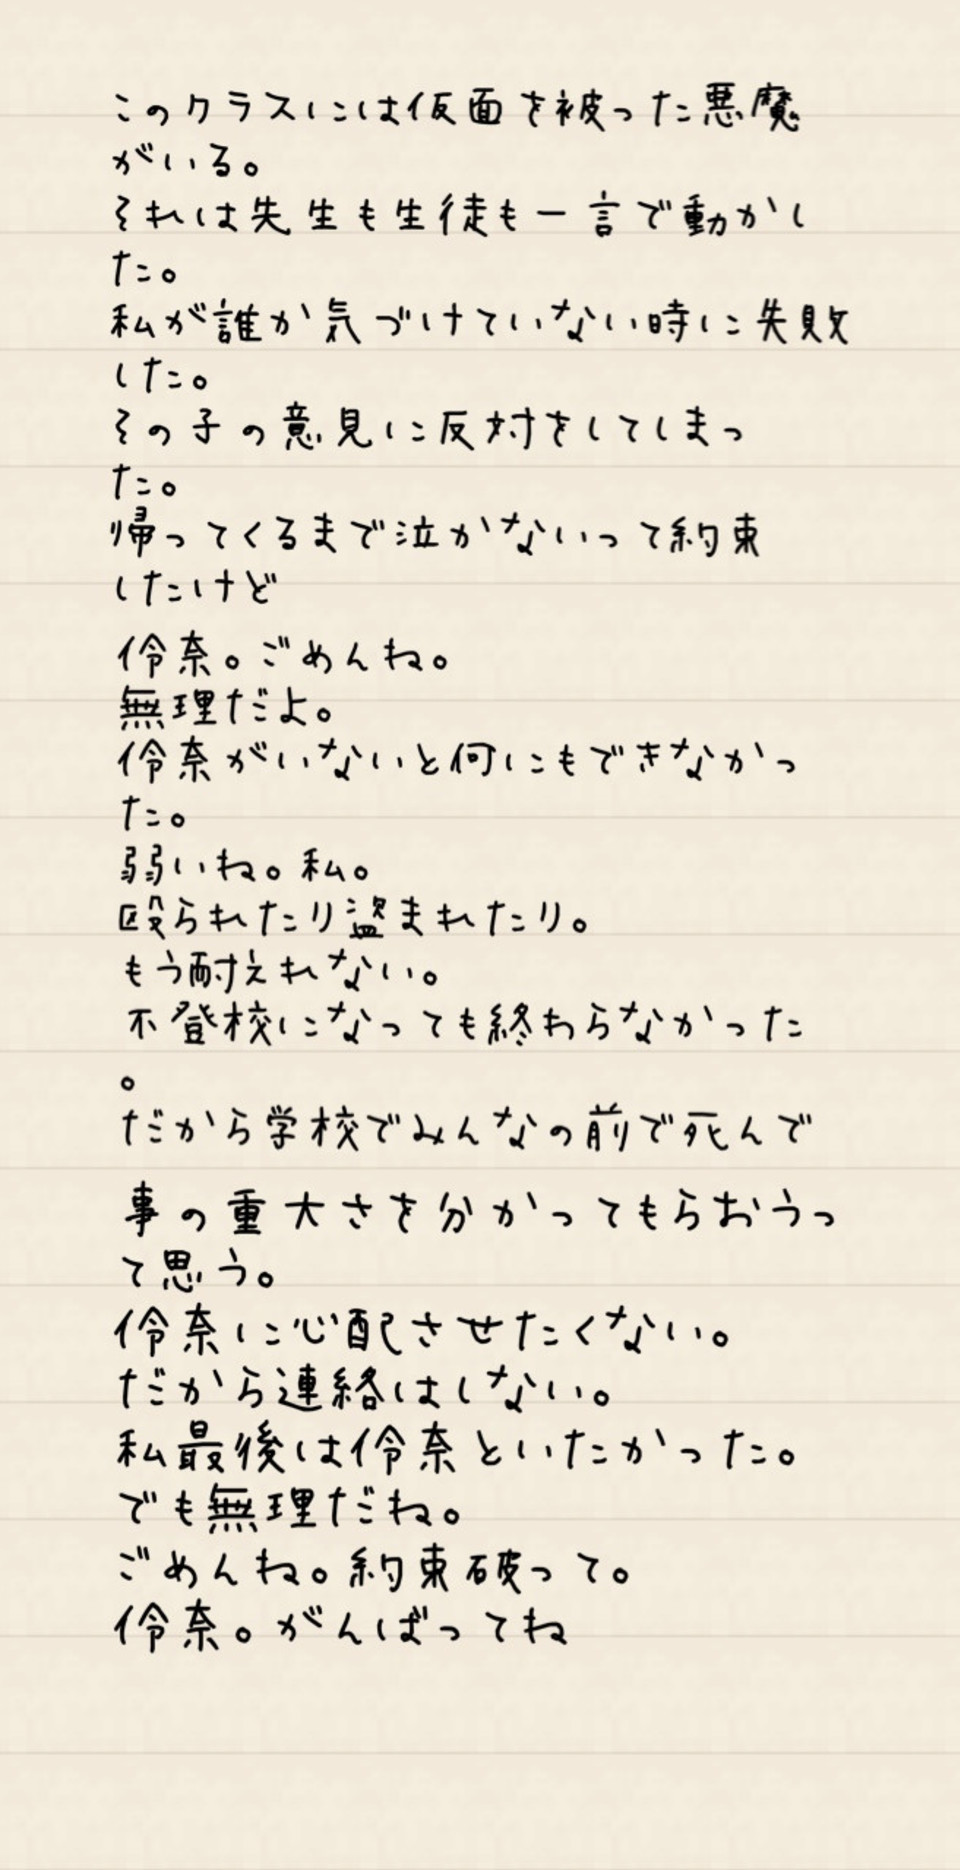 このクラスには仮面を被った悪魔
がいる。
それは先生も生徒も一言で動かし
た。
私が誰か気づけていない時に失敗
した。
その子の意見に反対をしてしまっ
た。
帰ってくるまで泣かないって約束
したけど
伶奈。ごめんね。
無理だよ。
伶奈がいないと何にもできなかっ
た。
弱いね。私。
殴られたり盗まれたり。
もう耐えれない。
不登校になっても終わらなかった
。
だから学校でみんなの前で死んで
事の重大さを分かってもらおうっ
て思う。
伶奈に心配させたくない。
だから連絡はしない。
私最後は伶奈といたかった。
でも無理だね。
ごめんね。約束破って。
伶奈。がんばってね